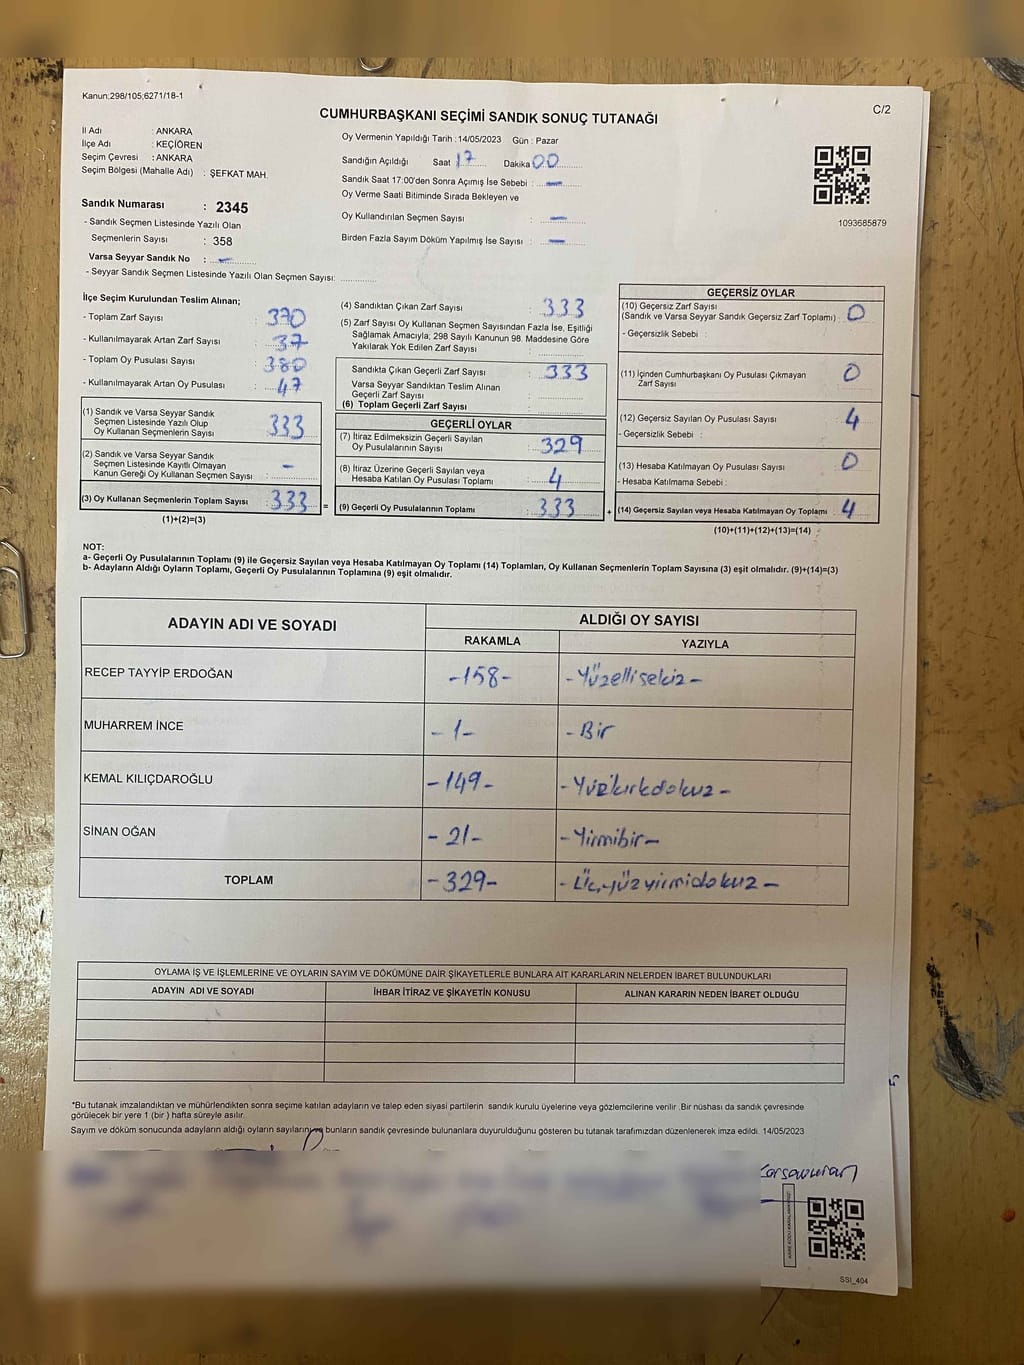 Kanun:298/105;6271/18-1
C/2
CUMHURBAŞKANI SEÇİMİ SANDIK SONUÇ TUTANAĞI
İl Adı : ANKARA
İlçe Adı : KEÇİÖREN
Seçim Çevresi : ANKARA
Seçim Bölgesi (Mahalle Adı) : ŞEFKAT MAH.
Sandık Numarası : 2345
- Sandık Seçmen Listesinde Yazılı Olan
Seçmenlerin Sayısı : 358
Varsa Seyyar Sandık No : -
- Seyyar Sandık Seçmen Listesinde Yazılı Olan Seçmen Sayısı:
Oy Vermenin Yapıldığı Tarih : 14/05/2023 Gün : Pazar
Sandığın Açıldığı Saat 17 Dakika 00
Sandık Saat 17:00'den Sonra Açımış İse Sebebi : -
Oy Verme Saati Bitiminde Sırada Bekleyen ve
Oy Kullandırılan Seçmen Sayısı : -
Birden Fazla Sayım Döküm Yapılmış İse Sayısı : -
1093685879
İlçe Seçim Kurulundan Teslim Alınan;
- Toplam Zarf Sayısı : 370
- Kullanılmayarak Artan Zarf Sayısı : 37
- Toplam Oy Pusulası Sayısı : 380
- Kullanılmayarak Artan Oy Pusulası : 47
(1) Sandık ve Varsa Seyyar Sandık
Seçmen Listesinde Yazılı Olup
Oy Kullanan Seçmenlerin Sayısı : 333
(2) Sandık ve Varsa Seyyar Sandık
Seçmen Listesinde Kayıtlı Olmayan
Kanun Gereği Oy Kullanan Seçmen Sayısı : -
(3) Oy Kullanan Seçmenlerin Toplam Sayısı : 333 =
(1)+(2)=(3)
(4) Sandıktan Çıkan Zarf Sayısı : 333
(5) Zarf Sayısı Oy Kullanan Seçmen Sayısından Fazla İse, Eşitliği
Sağlamak Amacıyla; 298 Sayılı Kanunun 98. Maddesine Göre
Yakılarak Yok Edilen Zarf Sayısı :
Sandıkta Çıkan Geçerli Zarf Sayısı : 333
Varsa Seyyar Sandıktan Teslim Alınan
Geçerli Zarf Sayısı :
(6) Toplam Geçerli Zarf Sayısı :
GEÇERLİ OYLAR
(7) İtiraz Edilmeksizin Geçerli Sayılan
Oy Pusulalarının Sayısı : 329
(8) İtiraz Üzerine Geçerli Sayılan veya
Hesaba Katılan Oy Pusulası Toplamı : 4
(9) Geçerli Oy Pusulalarının Toplamı : 333 +
GEÇERSİZ OYLAR
(10) Geçersiz Zarf Sayısı
(Sandık ve Varsa Seyyar Sandık Geçersiz Zarf Toplamı) : 0
- Geçersizlik Sebebi :
(11) İçinden Cumhurbaşkanı Oy Pusulası Çıkmayan
Zarf Sayısı : 0
(12) Geçersiz Sayılan Oy Pusulası Sayısı : 4
- Geçersizlik Sebebi :
(13) Hesaba Katılmayan Oy Pusulası Sayısı : 0
- Hesaba Katılmama Sebebi :
(14) Geçersiz Sayılan veya Hesaba Katılmayan Oy Toplamı : 4
(10)+(11)+(12)+(13)=(14)
NOT:
a- Geçerli Oy Pusulalarının Toplamı (9) ile Geçersiz Sayılan veya Hesaba Katılmayan Oy Toplamı (14) Toplamları, Oy Kullanan Seçmenlerin Toplam Sayısına (3) eşit olmalıdır. (9)+(14)=(3)
b- Adayların Aldığı Oyların Toplamı, Geçerli Oy Pusulalarının Toplamına (9) eşit olmalıdır.
ADAYIN ADI VE SOYADI ALDIĞI OY SAYISI
RAKAMLA YAZIYLA
RECEP TAYYİP ERDOĞAN -158- -Yüzellisekiz-
MUHARREM İNCE -1- -Bir
KEMAL KILIÇDAROĞLU -149- -Yüzkırkdokuz-
SİNAN OĞAN -21- -Yirmibir-
TOPLAM -329- -Üçyüzyirmidokuz-
OYLAMA İŞ VE İŞLEMLERİNE VE OYLARIN SAYIM VE DÖKÜMÜNE DAİR ŞİKAYETLERLE BUNLARA AİT KARARLARIN NELERDEN İBARET BULUNDUKLARI
ADAYIN ADI VE SOYADI İHBAR İTİRAZ VE ŞİKAYETİN KONUSU ALINAN KARARIN NEDEN İBARET OLDUĞU
*Bu tutanak imzalandıktan ve mühürlendikten sonra seçime katılan adayların ve talep eden siyasi partilerin sandık kurulu üyelerine veya gözlemcilerine verilir .Bir nüshası da sandık çevresinde
görülecek bir yere 1 (bir ) hafta süreyle asılır.
Sayım ve döküm sonucunda adayların aldığı oyların sayılarını ve bunların sandık çevresinde bulunanlara duyurulduğunu gösteren bu tutanak tarafımızdan düzenlenerek imza edildi. 14/05/2023
SSI_404